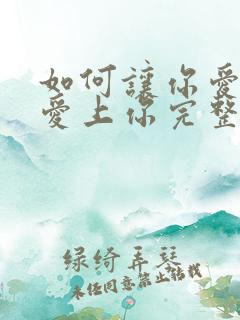 如何讓你愛
愛上你完整
绿绮弄琴
未经同意禁止转载